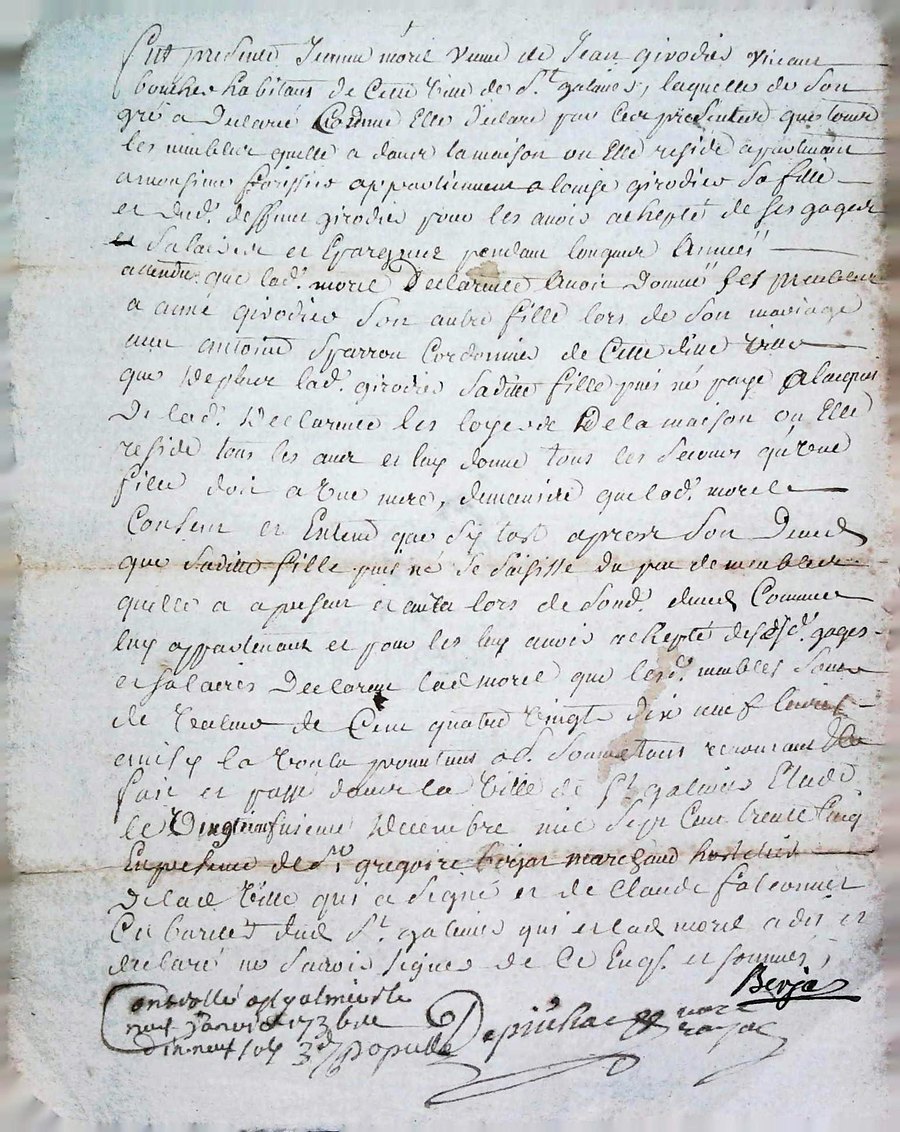 fut presente Jeanne morel veuve de Jean girodier vivant
boucher habitant de Cette ville de St galmier, laquelle de son
gré a declaré Comme Elle declare par Ces presentes que tous
les meubles quelle a dans la maison ou Elle reside appartenant
a monsieur appartiennent a louise girodier sa fille
et dud. deffunt girodier pour les avoir achepté de ses gages
et salaires et Epargnes pendant longues Années
attendu que lad. morel declarante avoir donné ses meubles
a anne girodier son autre fille lors de son mariage
avec antoine sparron Cordonnier de Cette ditte ville
que depuis lad. girodier saditte fille puis né paye a lacquit
de lad. declarante les loyers de la maison ou Elle
reside tous les ans et luy donne tous les secours qu'une
fille doit a une mere, demaniere que lad. morel
Consent et Entend que sy tost apres son deced
que saditte fille puis né se saisisse du peu de meubles
quelle a apresent et aura lors de sond. deced Comme
luy appartenant et pour les luy avoir achepté desd. gages
et salaires declarant lad morel que lesd. meubles sont
de valeur de Cent quatre vingt dix neuf livres
ainsy la voulu promettant ob. soumettant renonçant
fait et passé dans la ville de St galmier Etude
le vingt neufvieme decembre mil sept Cent trente Cinq
En presence de sr gregoire berjat marchand hostelier
de lad ville qui a signé et de Claude falconnet
Cabaretier dud St. galmier qui et lad morel a dit et
declaré ne savoir signer de Ce Enqs. et sommés,
Berjat
Controllé a St galmier le
neuf janvier 1736 Reçu
dix neuf sols